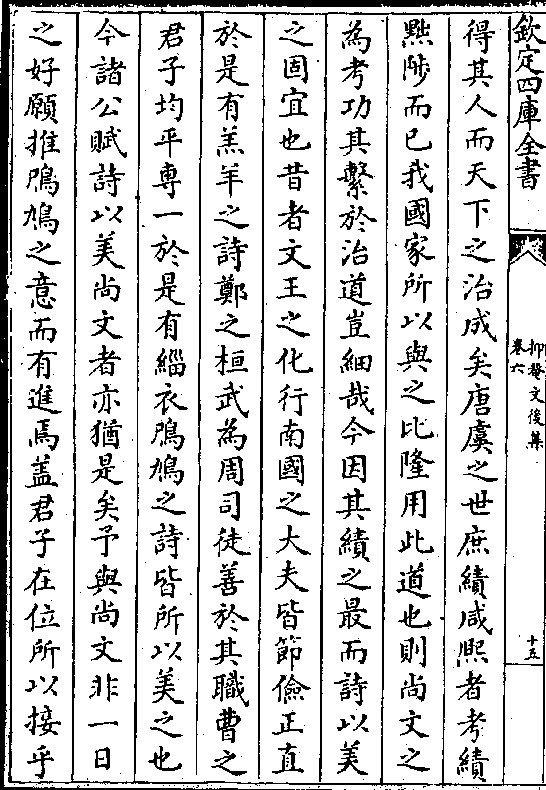 欽定四庫全書
抑菴文後集
卷六
十五
得其人而天下之治成矣唐虞之世庶績咸熙者考績
黜陟而已我國家所以與之比隆用此道也則尚文之
為考功其繫於治道豈細哉今因其績之最而詩以美
之固宜也昔者文王之化行南國之大夫皆節儉正直
於是有羔羊之詩鄭之桓武為周司徒善於其職曹之
君子均平専一於是有緇衣鳲鳩之詩皆所以美之也
今諸公賦詩以美尚文者亦猶是矣予與尚文非一日
之好願推鳲鳩之意而有進焉盖君子在位所以接乎